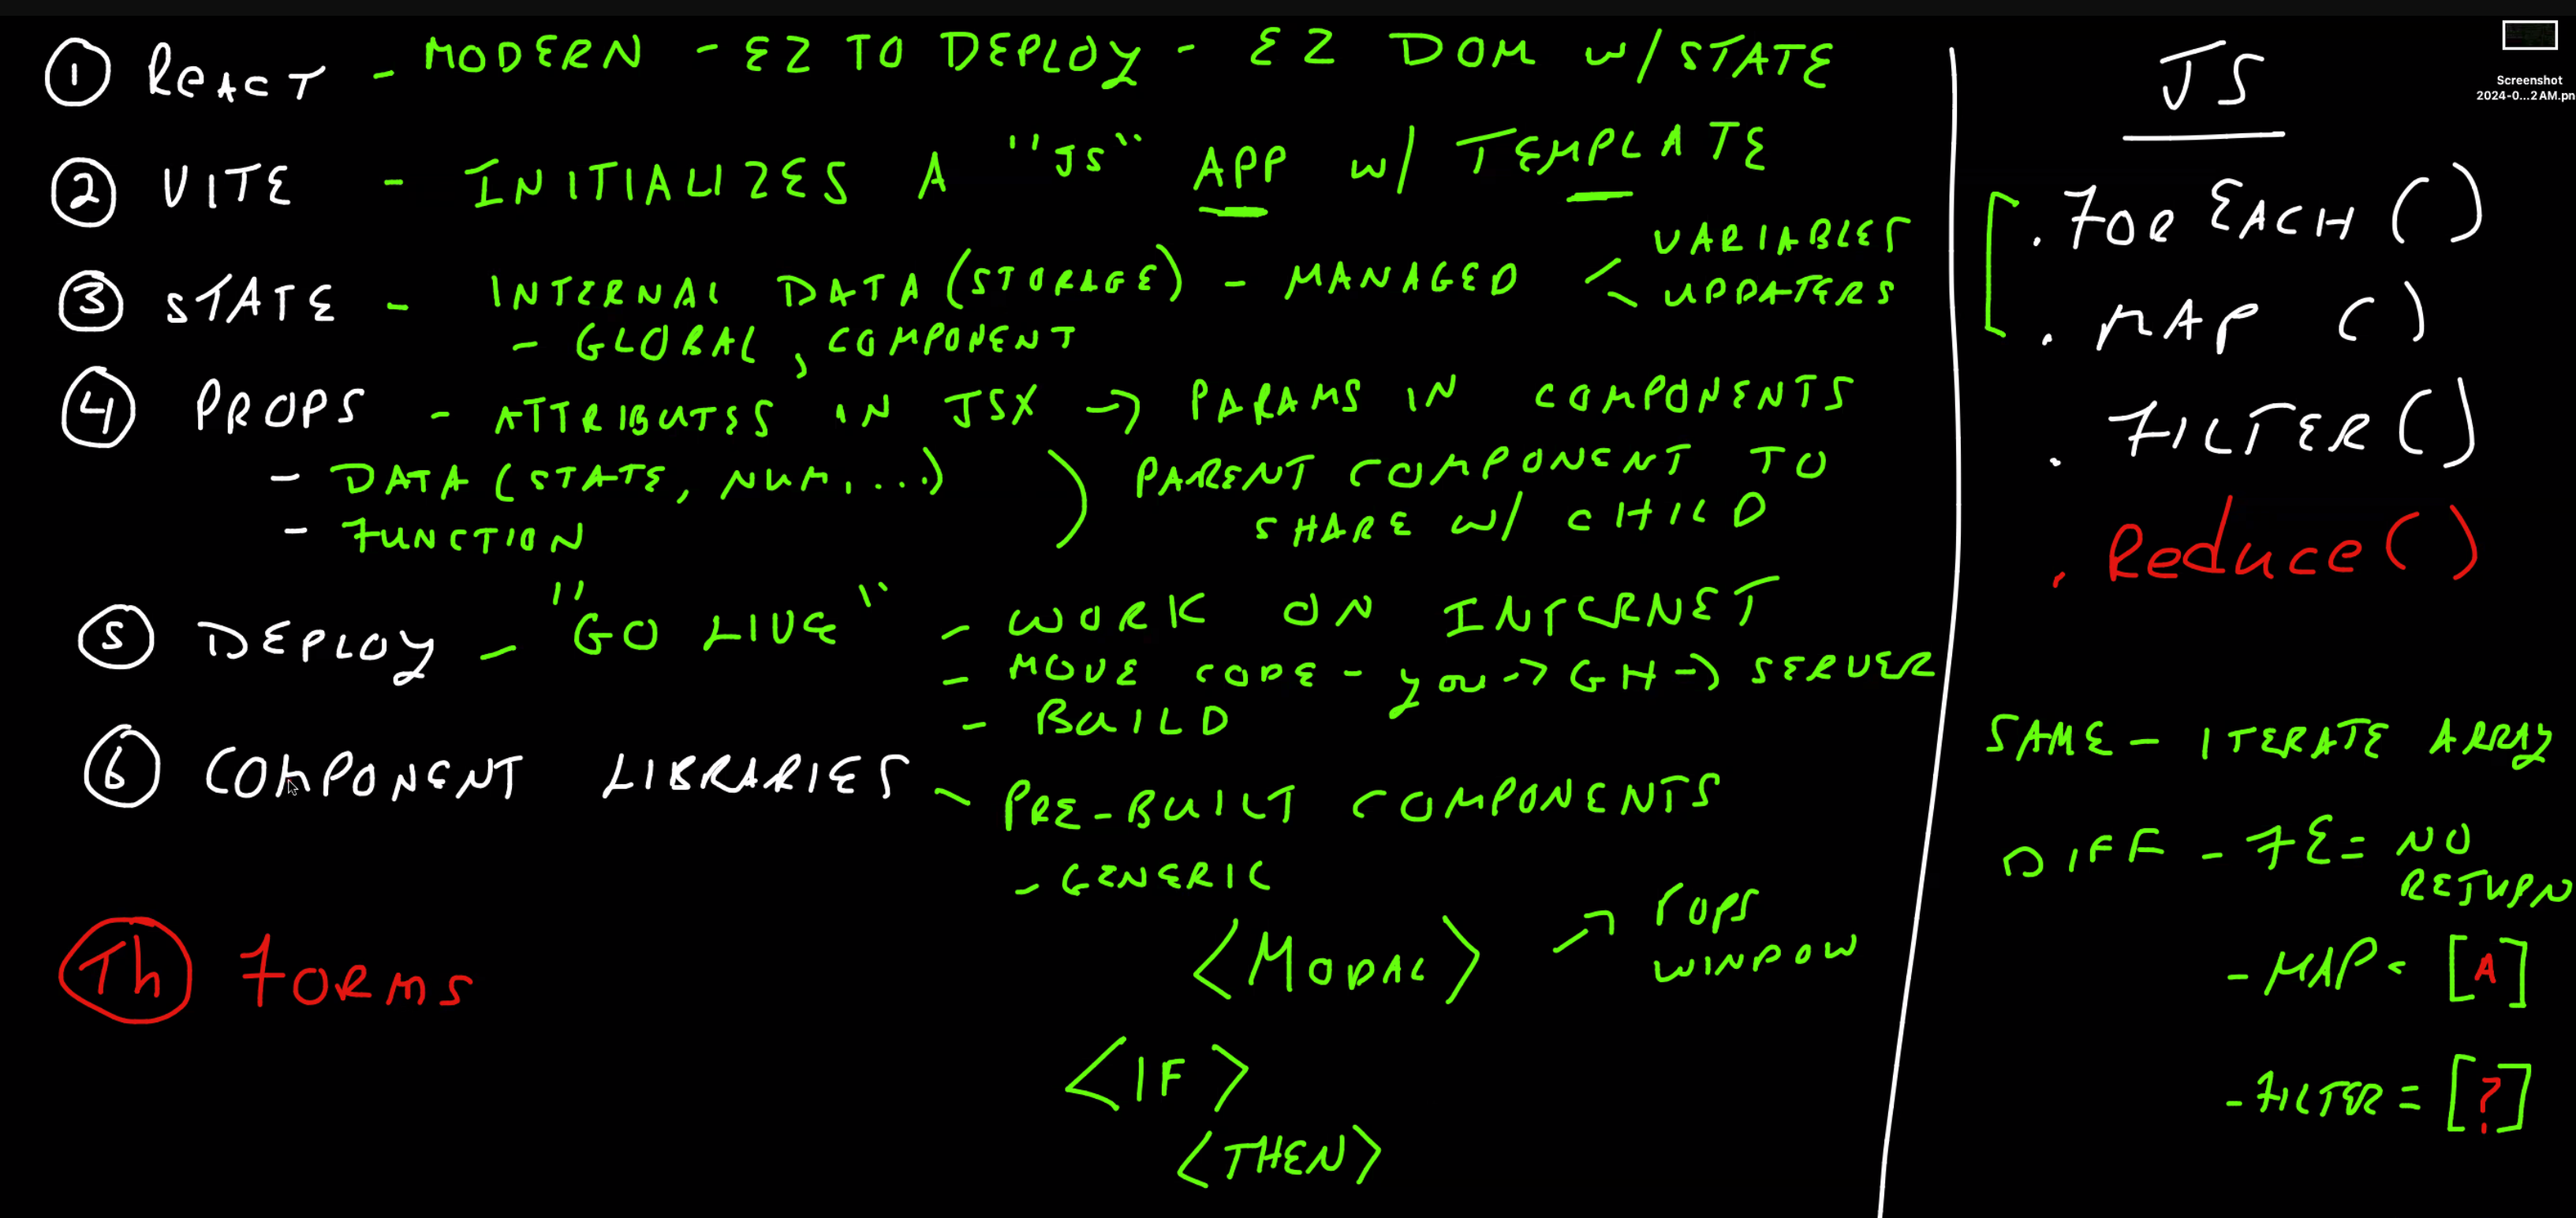 ① React - MODERN - EZ TO DEPLOY - EZ DOM w/ STATE
② VITE - INITIALIZES A "JS" APP w/ TEMPLATE
③ STATE - INTERNAL DATA (STORAGE) - MANAGED < VARIABLES
UPDATERS
- GLOBAL, COMPONENT
④ PROPS - ATTRIBUTES IN JSX -> PARAMS IN COMPONENTS
- DATA (STATE, NUM, ...) ) PARENT COMPONENT TO
- FUNCTION SHARE w/ CHILD
⑤ DEPLOY - "GO LIVE" - WORK ON INTERNET
- MOVE CODE - you -> GH -> SERVER
- BUILD
⑥ COMPONENT LIBRARIES - PRE-BUILT COMPONENTS
- GENERIC
<MODAL> -> POPS
WINDOW
<IF>
<THEN>
Th FORMS
JS
.FOR EACH ()
.MAP ()
.FILTER ()
.Reduce ()
SAME - ITERATE ARRAY
DIFF - FE = NO
RETURN
- MAP = [A]
- FILTER = [?]
Screenshot
2024-0...2AM.pn